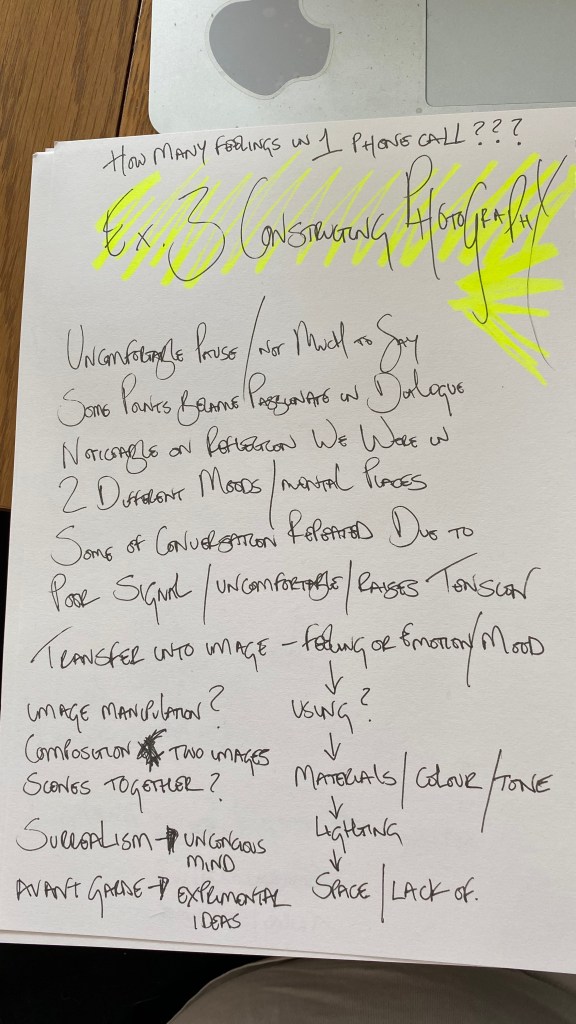 HOW MANY FEELINGS IN 1 PHONE CALL???
EX. 3 CONSTRUCTING PHOTOGRAPHY
UNCOMFORTABLE PAUSE / NOT MUCH TO SAY
SOME POINTS BECAME PASSIONATE IN DIALOGUE
NOTICEABLE ON REFLECTION WE WERE IN
2 DIFFERENT MOODS / MENTAL PLACES
SOME OF CONVERSATION REPEATED DUE TO
POOR SIGNAL / UNCOMFORTABLE / RAISES TENSION
TRANSFER INTO IMAGE – FEELING OR EMOTION / MOOD
↓
IMAGE MANIPULATION?
COMPOSITION TWO IMAGES
SCENES TOGETHER?
SURREALISM → UNCONCIOUS
MIND
AVANT GARDE → EXPRIMENTAL
IDEAS
USING?
↓
MATERIALS / COLOUR / TONE
↓
LIGHTING
↓
SPACE / LACK OF.